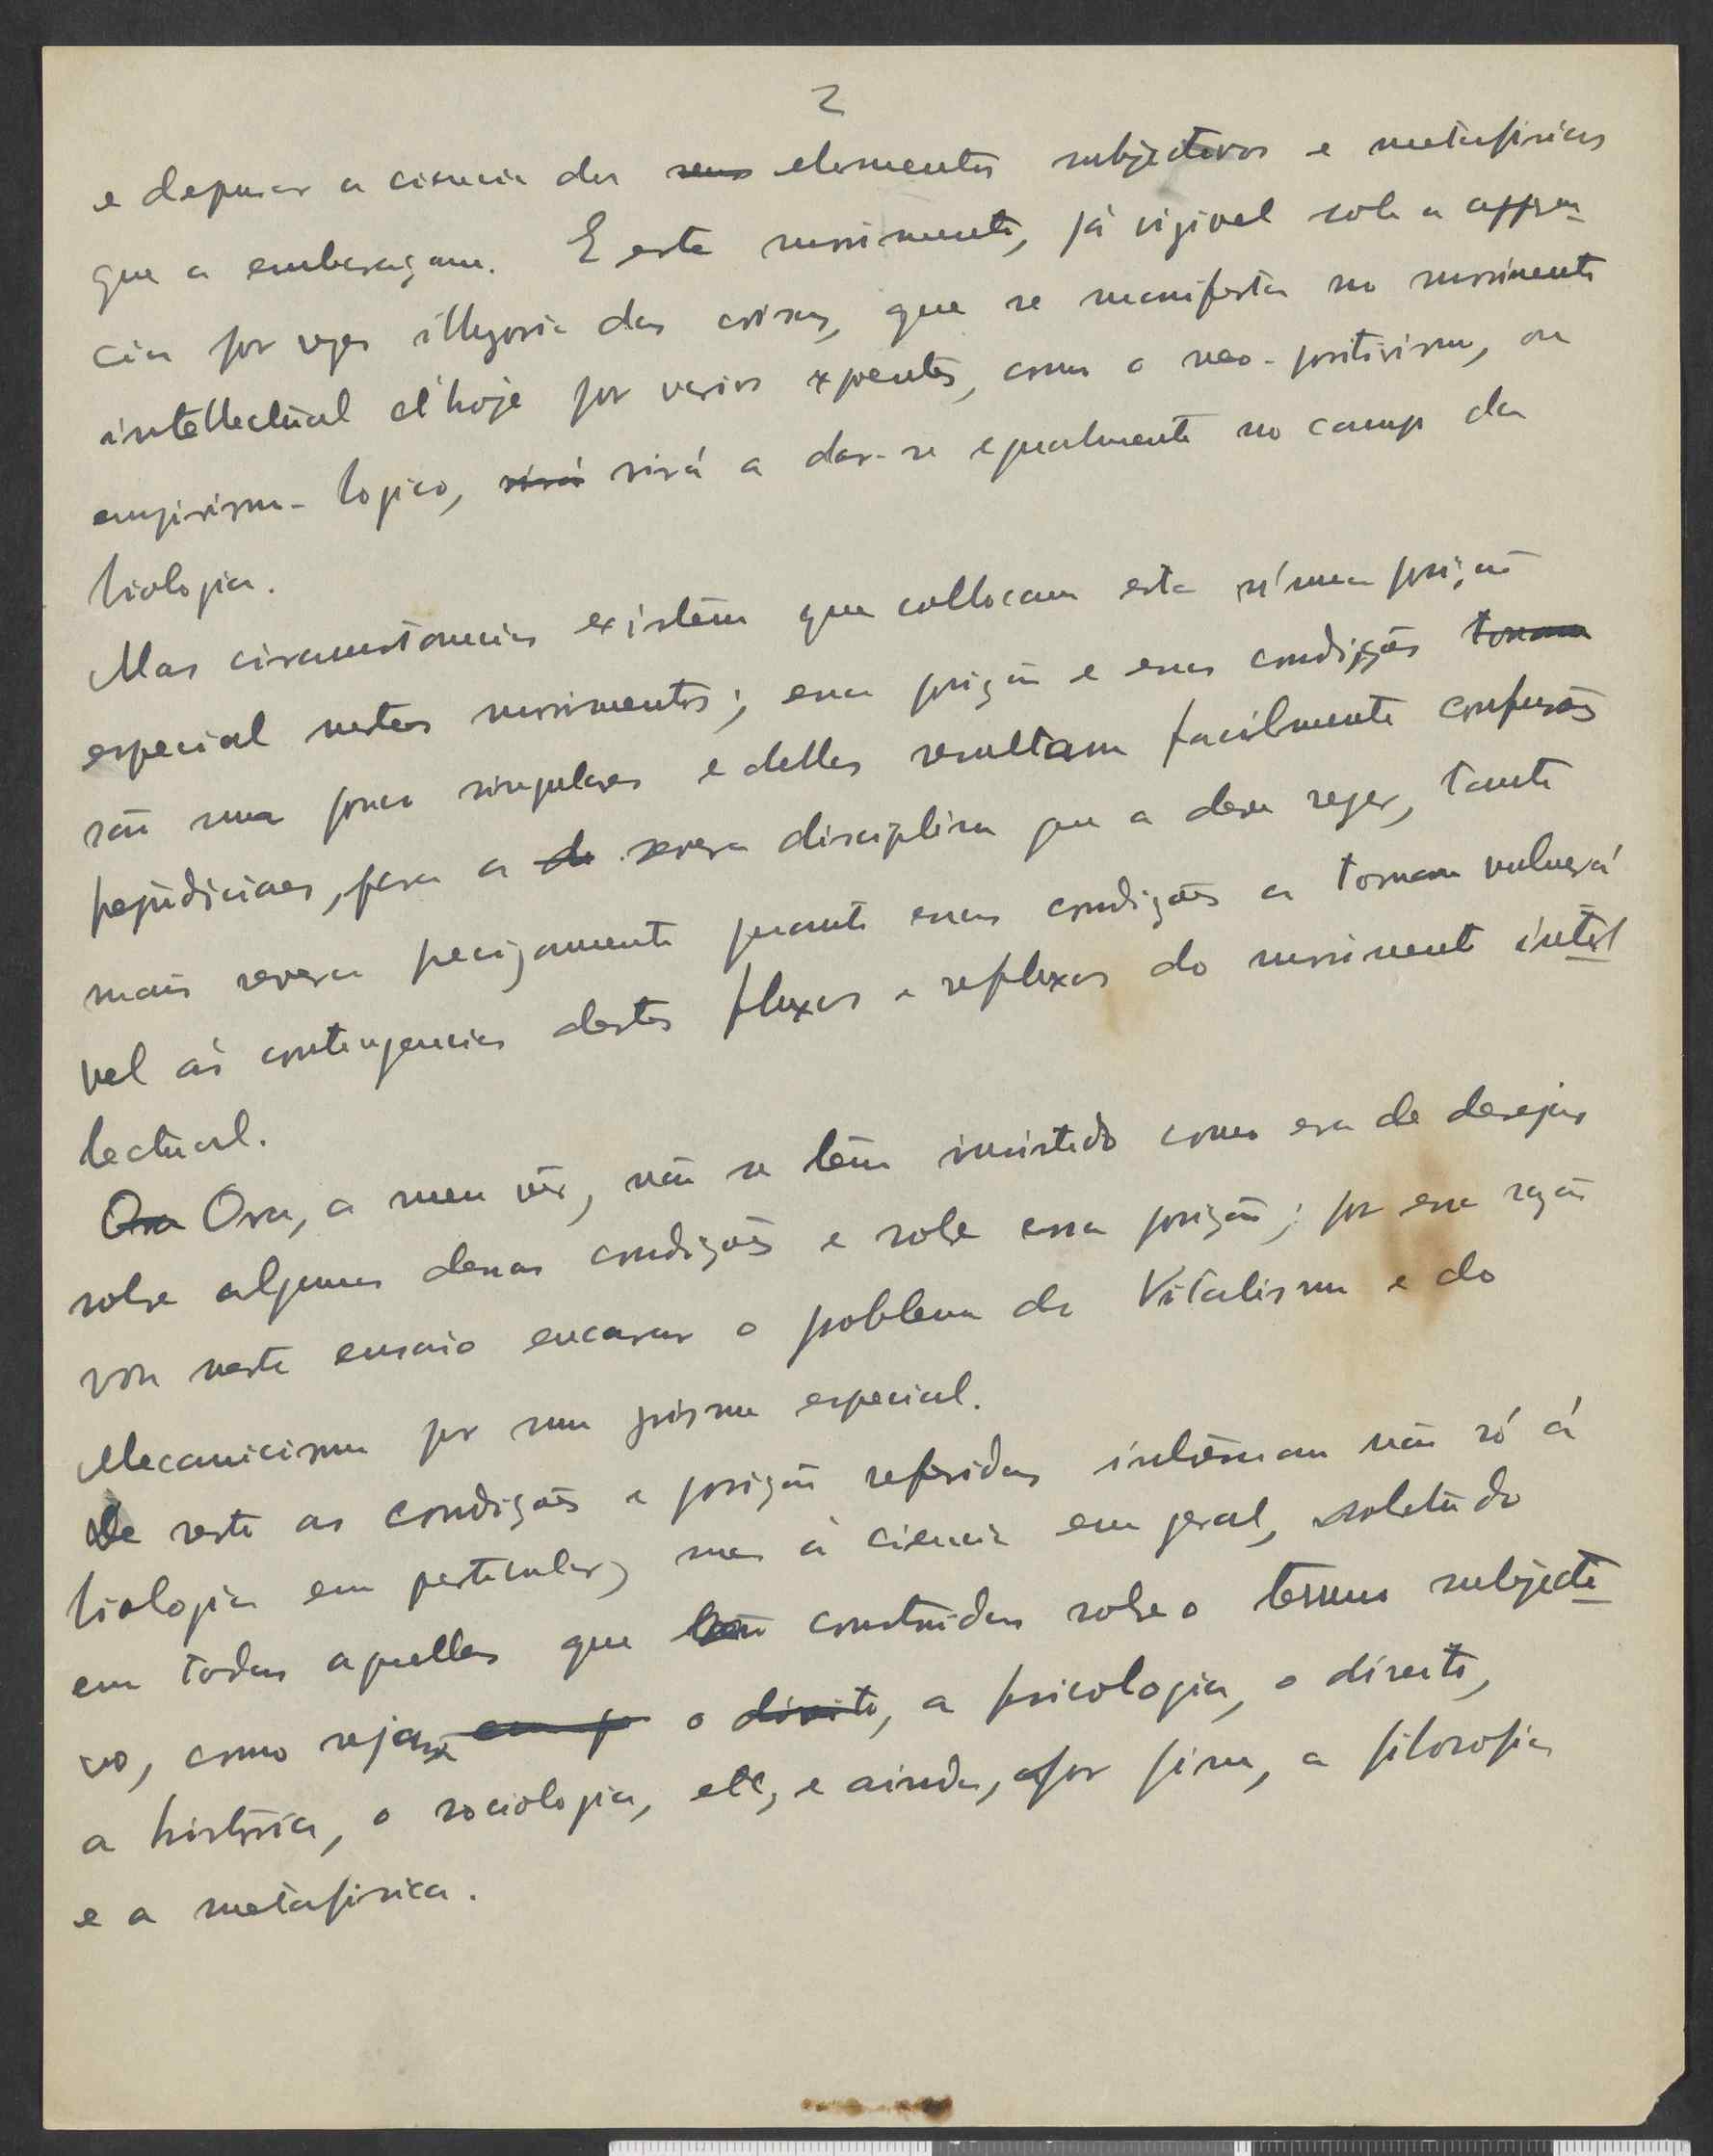 2
e depurar a ciencia dos seus elementos subjectivos e metafisicos
que a embaraçam. E este movimento, já visivel sob a appren-
cia por vezes illusoria das coisas, que se manifesta no movimento
intellectual d'hoje por varios expoentes, como o neo-positivismo, ou
empirismo-logico, virá virá a dar-se egualmente no campo da
biologia.
Mas circumstancias existem que collocam esta n'uma posição
especial nestes movimentos; essa posição e essas condições tornam
são uma pouco singulares e delles resultam facilmente confusões
prejudiciaes, para a de severa disciplina que a deve reger, tanto
mais severa precizamente quanto essas condições a tornam vulnerá
vel ás contingencias destes fluxos e reflexos do movimento intel
lectual.
Ora Ora, a meu vêr, não se tem insistido como era de desejar
sobre algumas dessas condições e sobre essa posição; por essa razão
vou neste ensaio encarar o problema do Vitalismo e do
Mecanicismo por um prisma especial.
De resto as condições e posição referidas interessam não só á
biologia em particular, mas á ciencia em geral, sobretudo
em todas aquellas que construidas sobre o termo subjecti
vo, como sejam o direito, a psicologia, o direito,
a historia, o sociologia, etc, e ainda, por fim, a filosofia
e a metafisica.